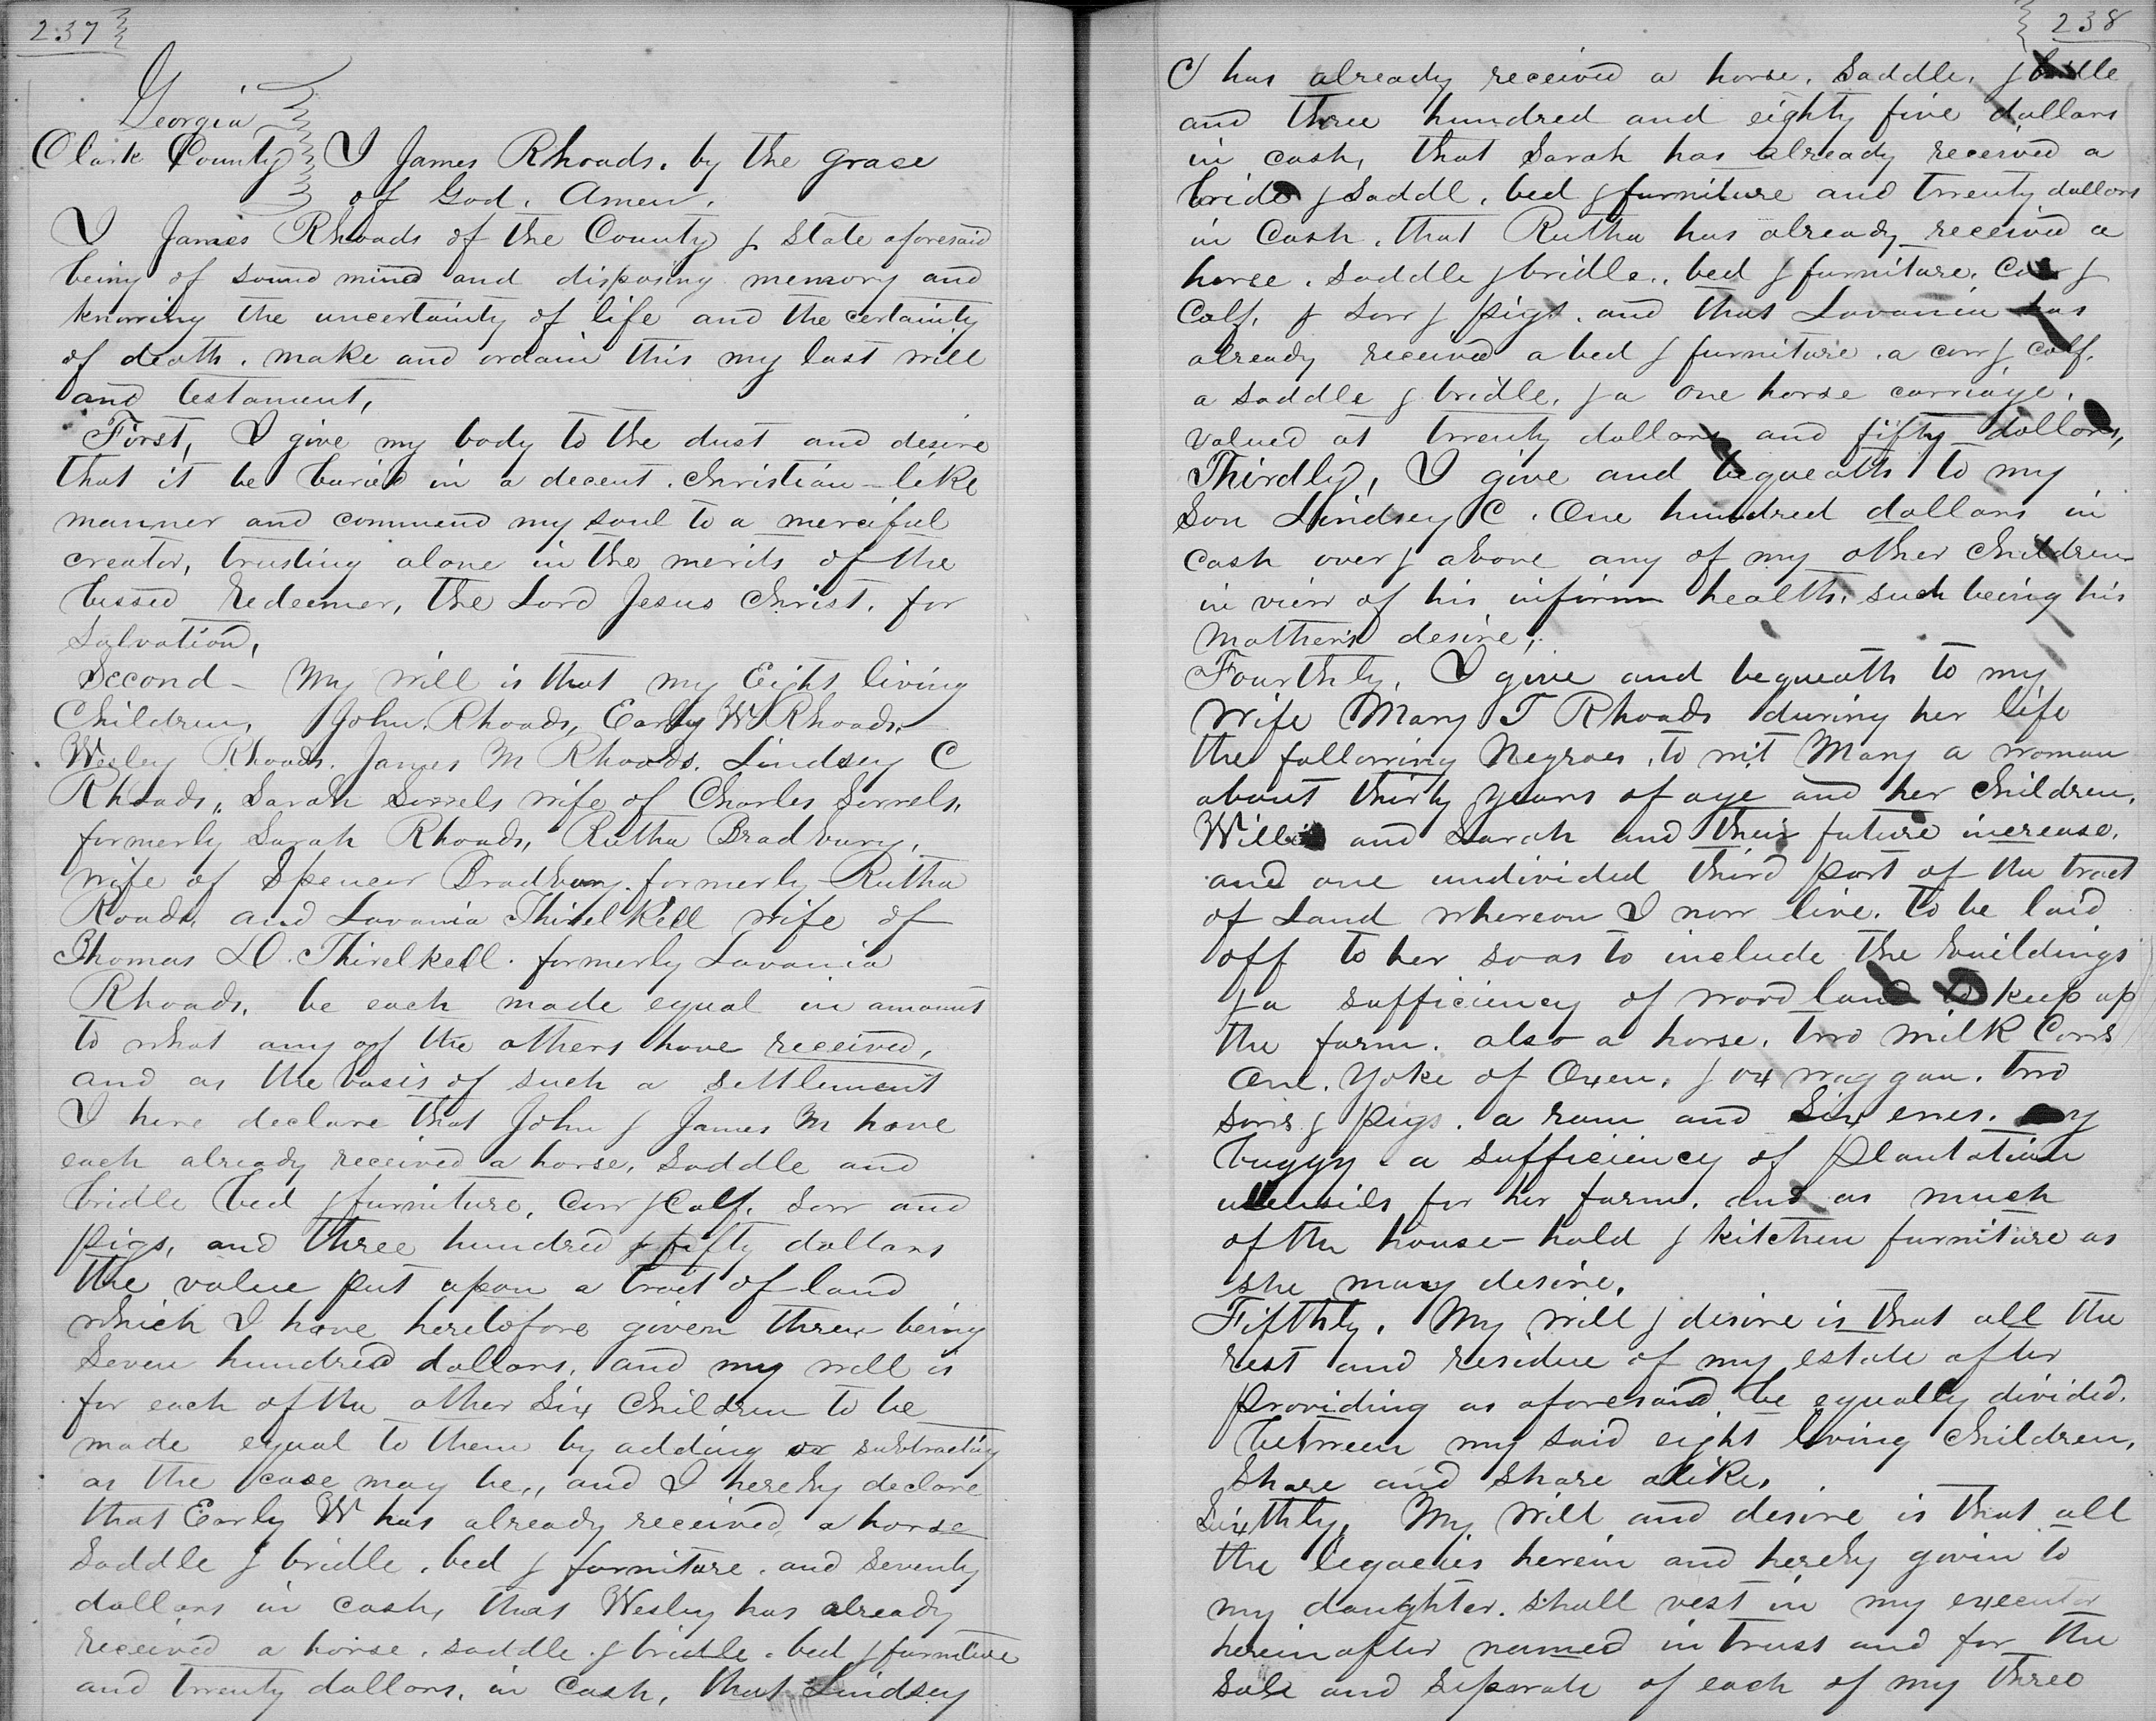 237
Georgia
Clark County I James Rhoads. by the grace
of God. Amen.
I James Rhoads of the County & State aforesaid
being of sound mind and disposing memory and
knowing the uncertainty of life and the certainity
of death. make and ordain this my last will
and testament,
First, I give my body to the dust and desire
that it be buried in a decent. Christian-like
manner and commend my soul to a merciful
creator, trusting alone in the merits of the
bessed Redeemer, the Lord Jesus Christ. for
Salvation,
Second - My will is that my Eight living
Children, John. Rhoads, Early W Rhoads,
Wesley Rhoads. James M Rhoads. Lindsey C
Rhoads, Sarah Sorrels wife of Charles Sorrels,
formerly Sarah Rhoads, Rutha Bradbury,
wife of Spencer Bradbury. formerly Rutha
Roads. and Lavania Thirelkell wife of
Thomas D. Thirelkell. formerly Lavania
Rhoads, be each made equal in amount
to what any of the others have received,
and as the basis of such a settlement
I here declare that John & James M have
each already received a horse, saddle and
bridle bed & furniture, cow & calf. sow and
pigs, and three hundred & fifty dollars
the value put upon a tract of land
which I have heretofore given them being
Seven hundred dollars, and my will is
for each of the other Six Children to be
made equal to them by adding or subtracting
as the case may be,, and I hereby declare
that Early W has already received a horse
Saddle & bridle. bed & furniture. and seventy
dollars in cash, that Wesley has already
received a horse. saddle & bridle. bed & furniture
and twenty dollars, in Cash, that Lindsey
238
C has already received a horse, Saddle, & bridle
and three hundred and eighty five dollars
in cash, that Sarah has already received a
bride & Saddl. bed & furniture and twenty dollars
in Cash. that Rutha has already received a
horse. saddle & bridle,. bed & furniture. Cow &
Calf. & sow & pigs. and that Lavania has
already received a bed & furniture. a cow & calf.
a saddle & bridle, & a one horse carriage.
valued at twenty dollars and fifty dollars,
Thirdly, I give and bequeath to my
Son Lindsey C. One hundred dollars in
cash over & above any of my other Children
in view of his infirm health, such being his
mother's desire,
Fourthly, I give and bequeath to my
wife Mary T Rhoads during her life
the following Negroes, to wit Mary a woman
about thirty years of age and her Children.
Willis and Sarah and their future increase.
and one undivided third part of the tract
of Land whereon I now live. to be laid
off to her so as to include the buildings
& a sufficiency of wood land to keep up
the farm. also a horse, two milk Cows
One. Yoke of Oxen. & ox waggon. two
sows & pigs. a ram and Six ewes. my
buggy. a sufficiency of plantation
utensils for her farm. and as much
of the house-hold & kitchen furniture as
she may desire.
Fifthly. My will & desire is that all the
rest and residue of my estate after
providing as aforesaid be equally divided.
between my said eight living Children,
share and share alike,
Sixthly, My will and desire is that all
the legacies herein and hereby givin to
my daughter. shall vest in my executor
hereinafter named in trust and for the
sole and separate of each of my three